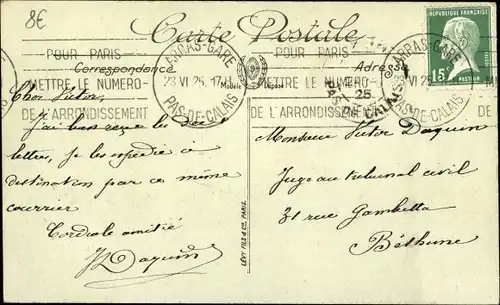 8€
Carte Postale
POUR PARIS
METTRE LE NUMERO
DE L'ARRONDISSEMENT
ARRAS-GARE
23 VI 25
PAS-DE-CALAIS
Modèle Déposé
POUR PARIS
METTRE LE NUMERO
DE L'ARRONDISSEMENT
ARRAS-GARE
PAS-DE-CALAIS
25
RÉPUBLIQUE FRANÇAISE
15c
PASTEUR
POSTES
Correspondance
Adresse
Cher Victor,
J'ai bien reçu les six
lettres, je les expédie à
destination par ce même
courrier
Cordiale amitié
Daquin
LÉVY FILS & Cie, PARIS.
Monsieur Victor Daquin
Juge au tribunal civil
31 rue Gambetta
Béthune